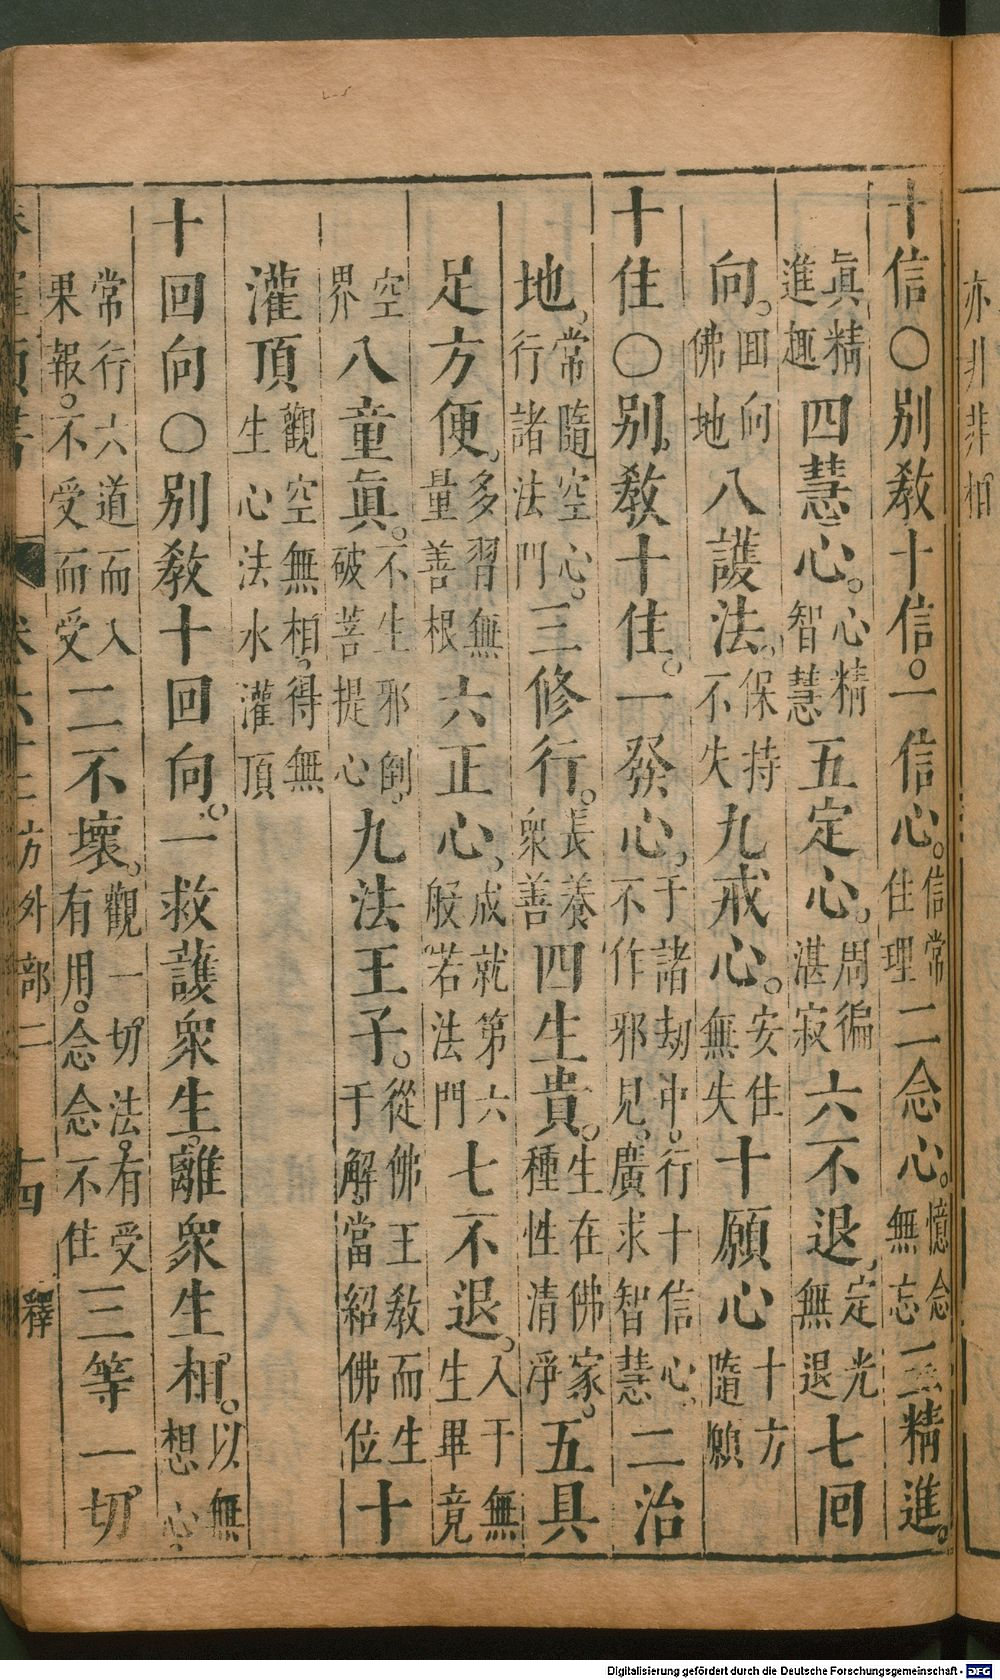 亦非非相
十信○別教十信。一信心。信常住理二念心。憶念無忘三精進。
眞精進趣四慧心。心精智慧五定心。周徧湛寂六不退、定光無退七回
向。回向佛地八護法、保持不失九戒心。安住無失十願心十方隨願
十住○別教十住。一發心、于諸劫中。行十信心、不作邪見。廣求智慧二治
地、常隨空心。行諸法門三修行。長養衆善四生貴。生在佛家。種性清淨五具
足方便、多習無量善根六正心、成就第六般若法門七不退。入于無生畢竟
空界八童眞。不生邪倒。破菩提心九法王子。從佛王教而生于解。當紹佛位十
灌頂觀空無相、得無生心法水灌頂
十回向○別教十回向。一救護衆生。離衆生相。以無想心、
常行六道而入果報。不受而受二不壞、觀一切法。有受有用。念念不住三等一切
卷六十三方外部二 十四 釋
Digitalisierung gefördert durch die Deutsche Forschungsgemeinschaft - DFG